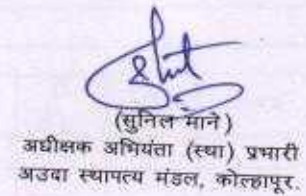 (सुनिल माने)
अधीक्षक अभियंता (स्था) प्रभारी
अउदा स्थापत्य मंडल, कोल्हापूर